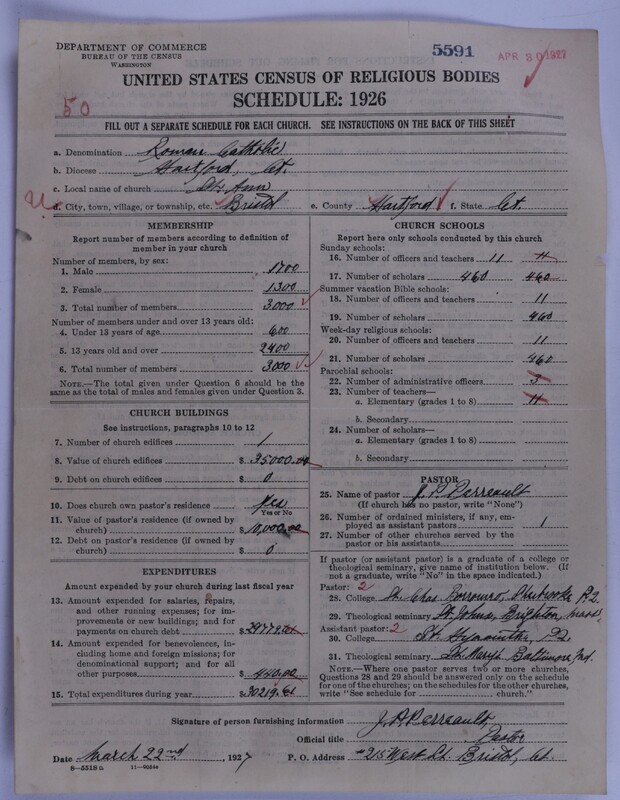 DEPARTMENT OF COMMERCE
BUREAU OF THE CENSUS
WASHINGTON
5591
APR 30 1927
UNITED STATES CENSUS OF RELIGIOUS BODIES
SCHEDULE: 1926
50
FILL OUT A SEPARATE SCHEDULE FOR EACH CHURCH. SEE INSTRUCTIONS ON THE BACK OF THIS SHEET
a. Denomination Roman Catholic
b. Diocese Hartford, Ct.
c. Local name of church St. Ann
d. City, town, village, or township, etc. Bristol e. County Hartford f. State Ct.
MEMBERSHIP
Report number of members according to definition of
member in your church
Number of members, by sex:
1. Male 1700
2. Female 1300
3. Total number of members 3000
Number of members under and over 13 years old:
4. Under 13 years of age 600
5. 13 years old and over 2400
6. Total number of members 3000
NOTE.—The total given under Question 6 should be the
same as the total of males and females given under Question 3.
CHURCH BUILDINGS
See instructions, paragraphs 10 to 12
7. Number of church edifices 1
8. Value of church edifices $ 35000.00
9. Debt on church edifices $ 0
10. Does church own pastor's residence Yes
Yes or No
11. Value of pastor's residence (if owned by
church) $ 10,000.00
12. Debt on pastor's residence (if owned by
church) $ 0
EXPENDITURES
Amount expended by your church during last fiscal year
13. Amount expended for salaries, repairs,
and other running expenses; for im-
provements or new buildings; and for
payments on church debt $ 29779.61
14. Amount expended for benevolences, in-
cluding home and foreign missions; for
denominational support; and for all
other purposes $ 440.00
15. Total expenditures during year $ 30219.61
CHURCH SCHOOLS
Report here only schools conducted by this church
Sunday schools:
16. Number of officers and teachers 11 11
17. Number of scholars 460 460
Summer vacation Bible schools:
18. Number of officers and teachers 11
19. Number of scholars 460
Week-day religious schools:
20. Number of officers and teachers 11
21. Number of scholars 460
Parochial schools:
22. Number of administrative officers 3
23. Number of teachers—
a. Elementary (grades 1 to 8) 11
b. Secondary
24. Number of scholars—
a. Elementary (grades 1 to 8)
b. Secondary
PASTOR
25. Name of pastor J. P. Perreault
(If church has no pastor, write "None")
26. Number of ordained ministers, if any, em-
ployed as assistant pastors 1
27. Number of other churches served by the
pastor or his assistants
If pastor (or assistant pastor) is a graduate of a college or
theological seminary, give name of institution below. (If
not a graduate, write "No" in the space indicated.)
Pastor: 2
28. College St. Chas Borromeo, Sherbrooke P.Q.
29. Theological seminary St. Johns, Brighton, Mass
Assistant pastor: 2
30. College St. Hyacinthe, P.Q.
31. Theological seminary St. Marys Baltimore, Md.
NOTE.—Where one pastor serves two or more churches,
Questions 28 and 29 should be answered only on the schedule
for one of the churches; on the schedules for the other churches,
write "See schedule for church."
Signature of person furnishing information J. P. Perreault
Official title Pastor
Date March 22nd, 1927 P. O. Address #215 West St. Bristol, Ct.
8—5518 a 11—9054a